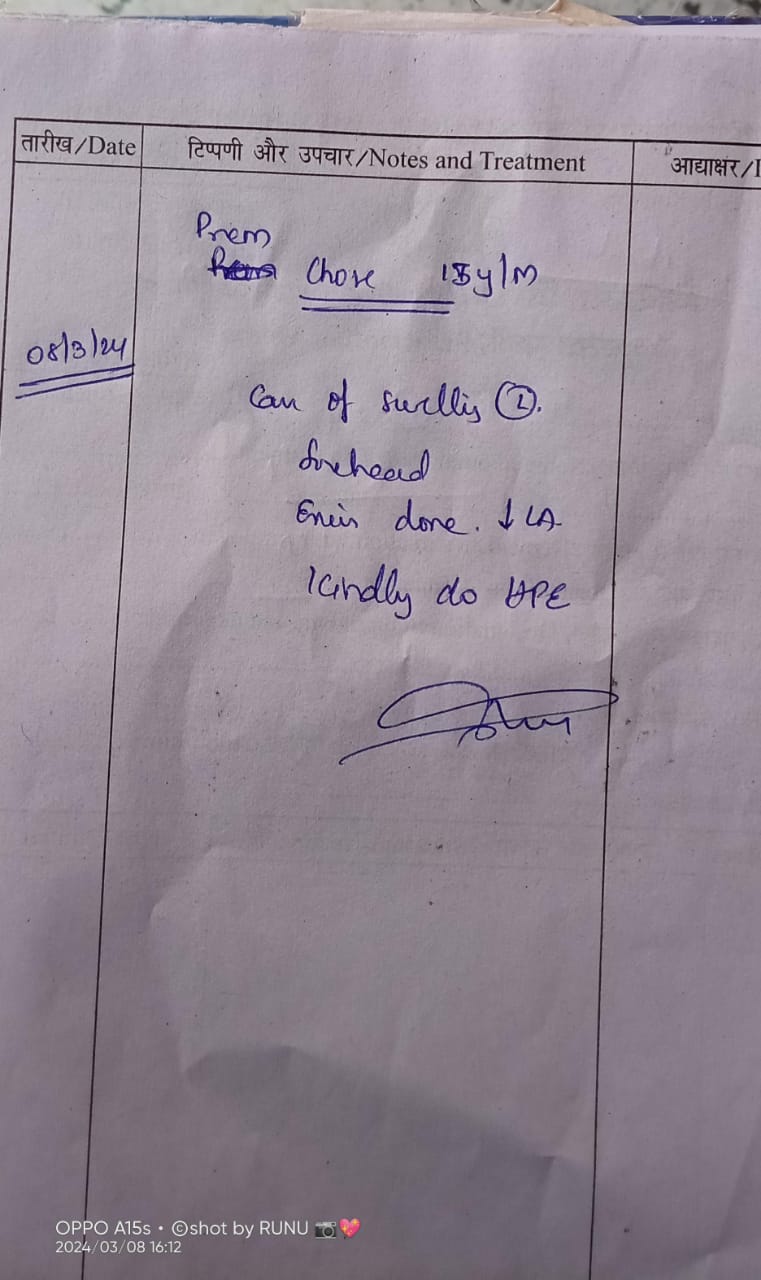 तारीख/Date
टिप्पणी और उपचार/Notes and Treatment
आद्याक्षर/I
Prem
Chose 15y/M
08/3/24
Case of swelling (L).
forehead
done. ↓ LA
Kindly do HPE
OPPO A15s • ©shot by RUNU 📷💖
2024/03/08 16:12